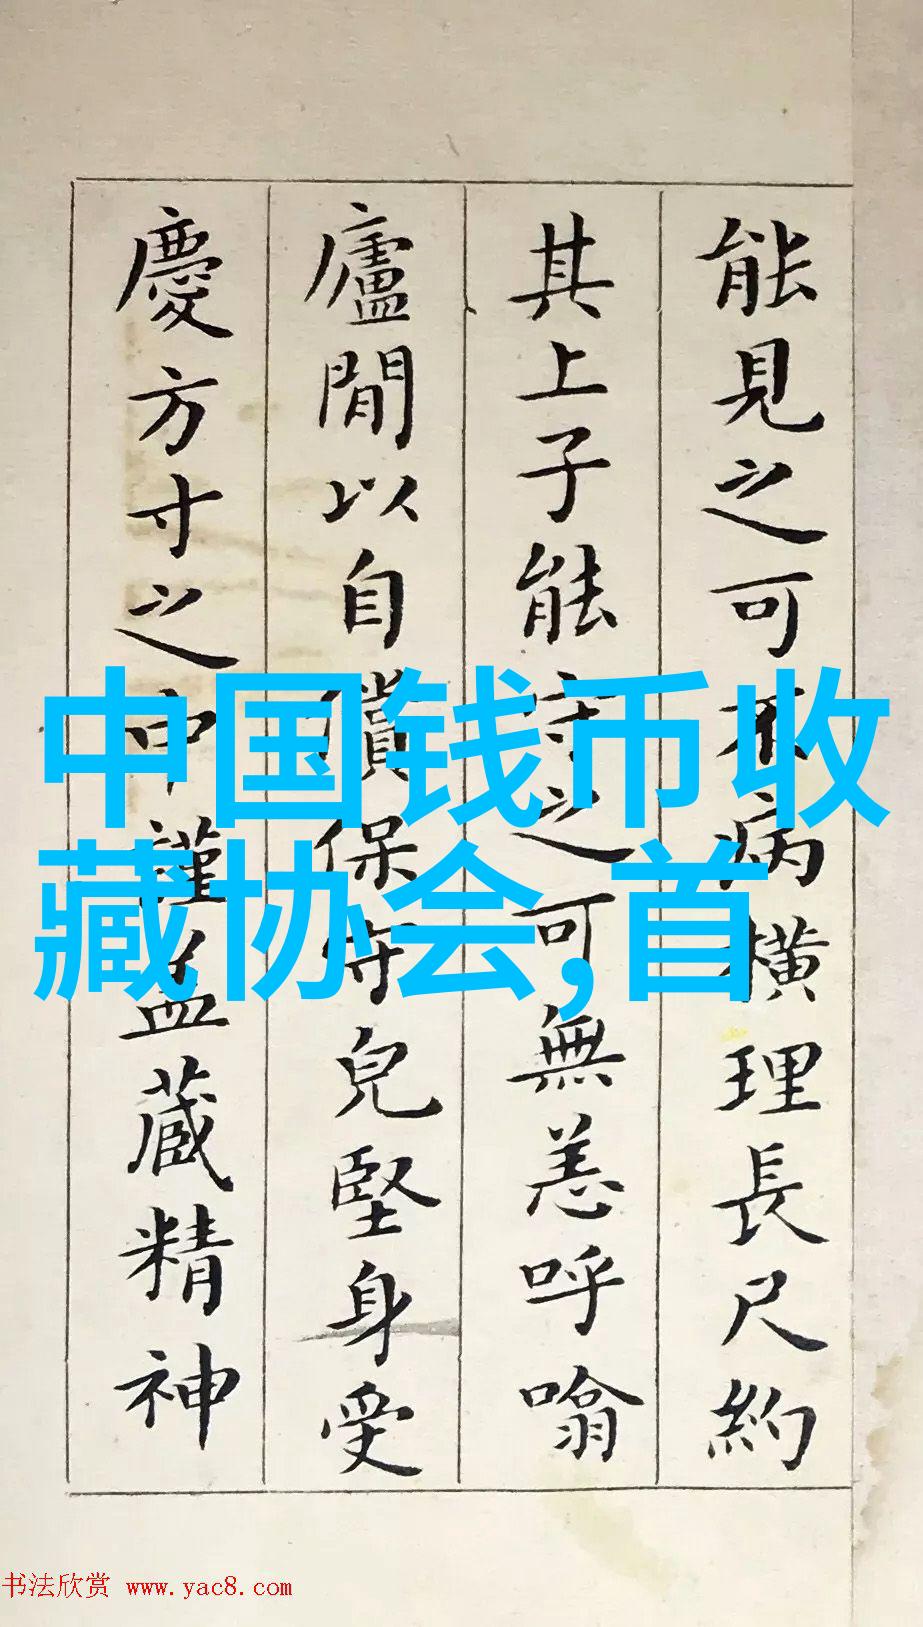 能見之可不病橫理長尺約
其上子能守之可無恙呼噏
廬閒以自償保守兒堅身受
慶方寸之中謹蓋藏精神
中国钱币收
藏协会,首
书法欣赏 www.yac8.com